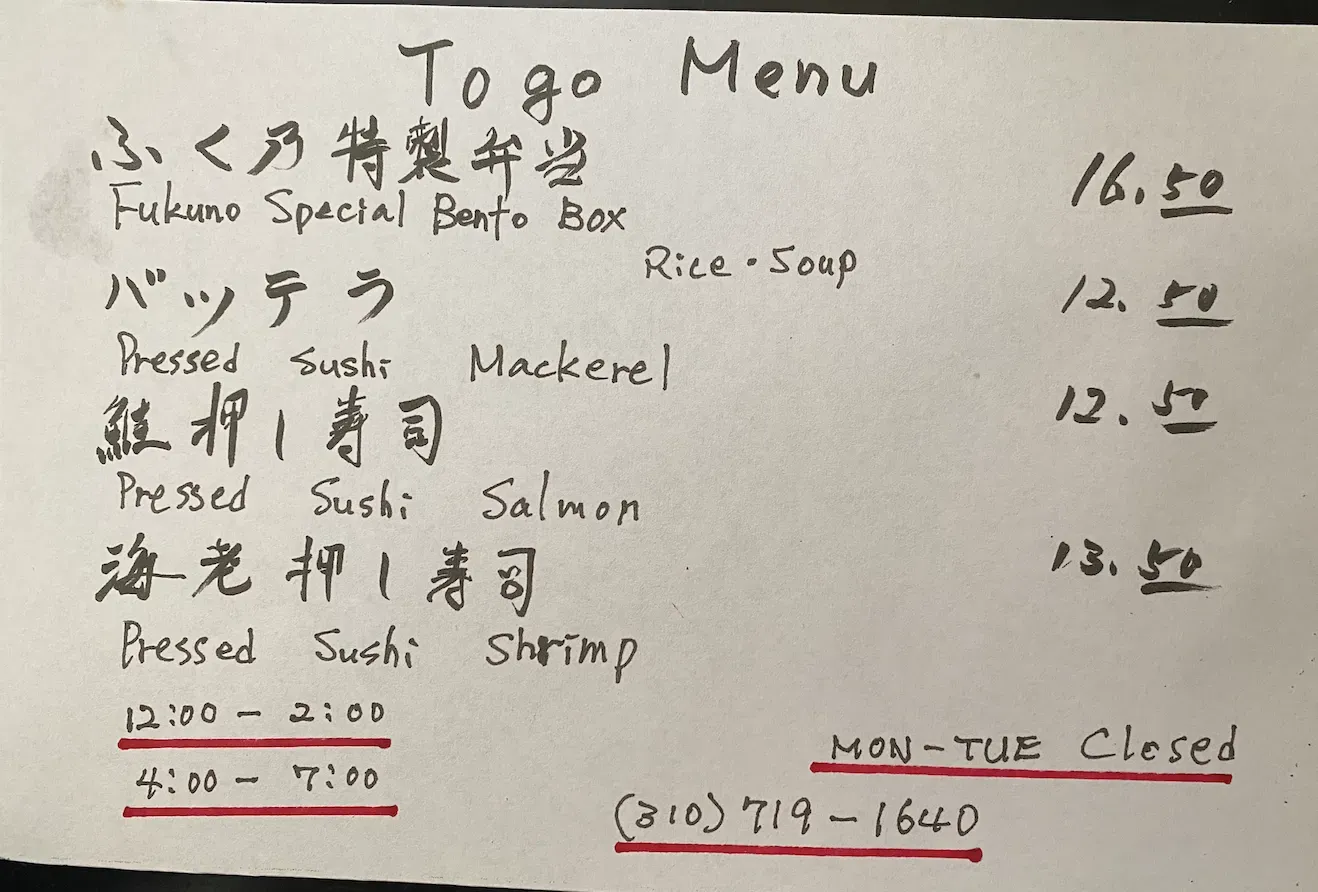 To go Menu
ふく乃特製弁当 16.50
Fukuno Special Bento Box
Rice・Soup
バッテラ 12.50
Pressed Sushi Mackerel
鮭押し寿司 12.50
Pressed Sushi Salmon
海老押し寿司 13.50
Pressed Sushi Shrimp
12:00 - 2:00
4:00 - 7:00
MON-TUE Closed
(310) 719-1640